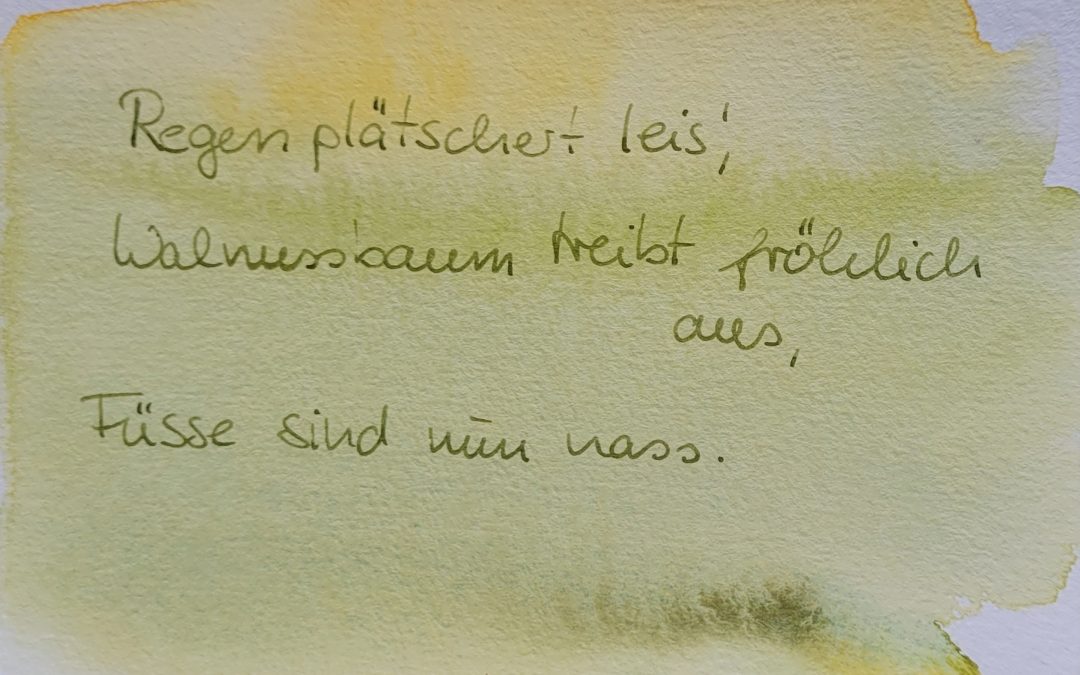 Regen plätschert leis',
Walnussbaum treibt fröhlich
aus,
Füsse sind nun nass.